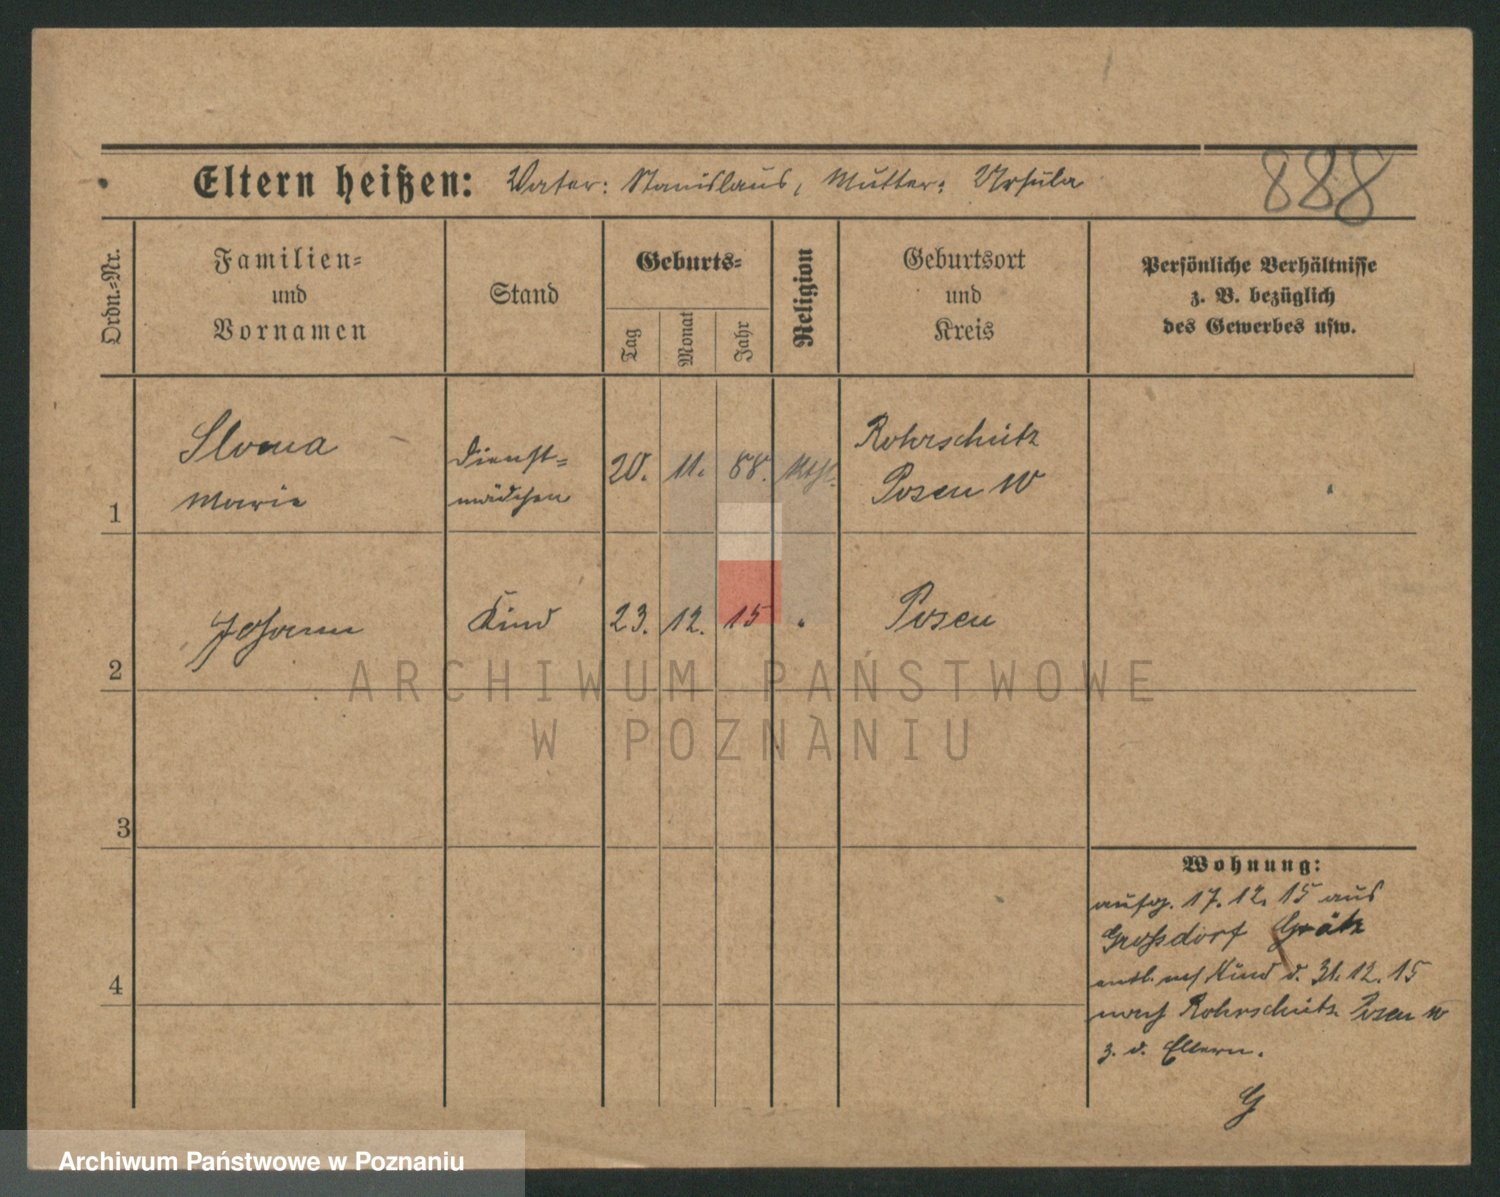 Eltern heißen: Vater: Stanislaus, Mutter: Ursula
888
Ordn.-Nr.
Familien-
und
Vornamen
Stand
Geburts-
Tag
Monat
Jahr
Religion
Geburtsort
und
Kreis
Persönliche Verhältnisse
z. B. bezüglich
des Gewerbes usw.
1
Sloma
Marie
Dienst-
mädchen
20. 11. 88. kath.
Rohrschütz
Posen W
2
Johann
Kind
23. 12. 15
Posen
3
4
Wohnung:
aufg. 17. 12. 15 aus
Großdorf Grätz
entl. Kind d. 31. 12. 15
nach Rohrschütz Posen W
z. d. Eltern.
G
ARCHIWUM PAŃSTWOWE
W POZNANIU
Archiwum Państwowe w Poznaniu